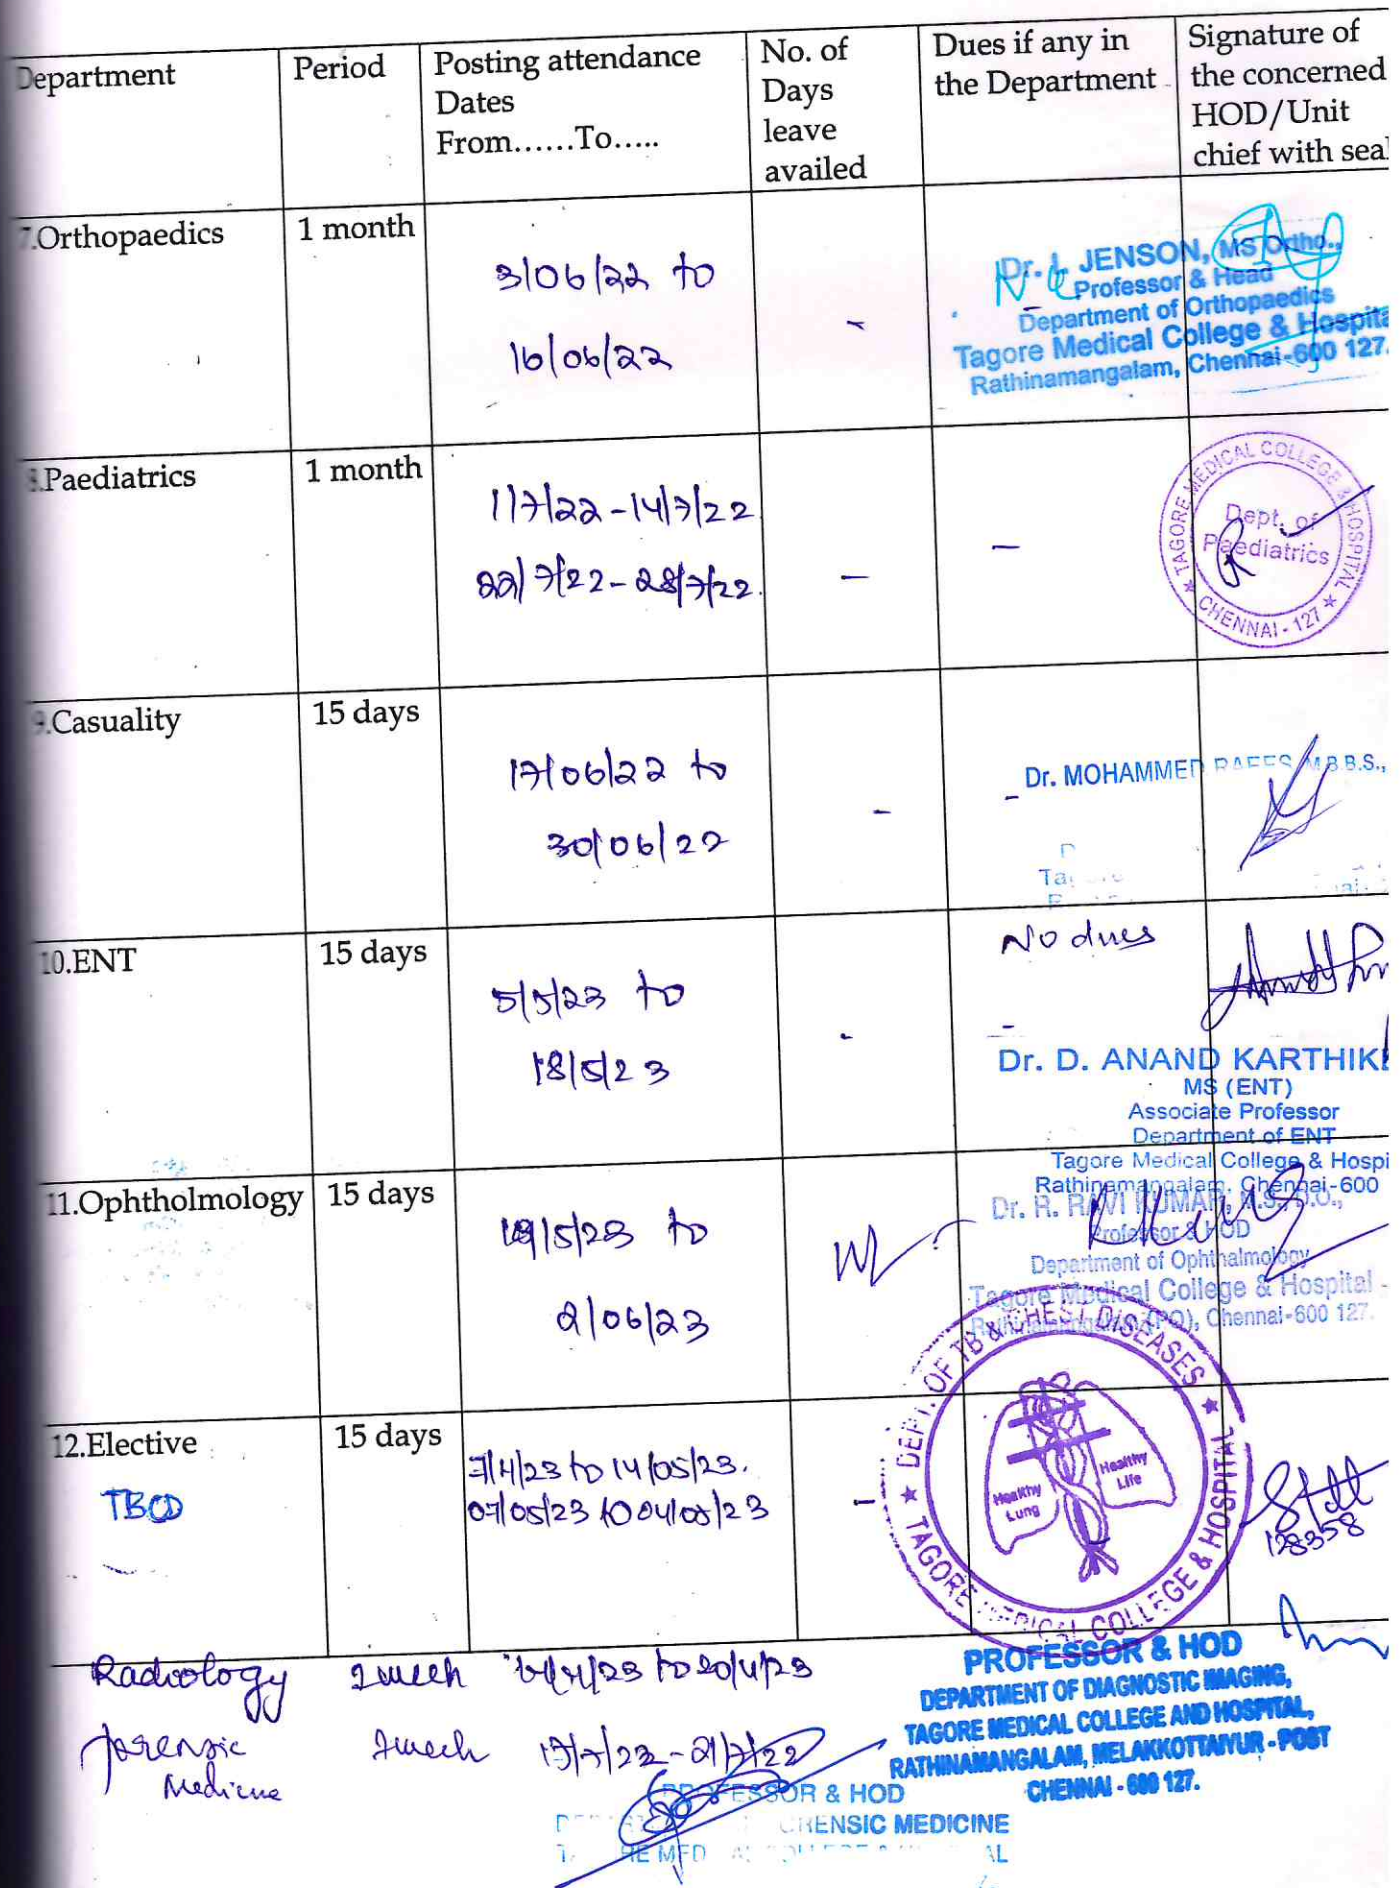 Department Period Posting attendance Dates From......To..... No. of Days leave availed Dues if any in the Department Signature of the concerned HOD/Unit chief with seal
7.Orthopaedics 1 month 3/06/22 to
16/06/22
-
Dr. L. JENSON, MS Ortho.,
Professor & Head
Department of Orthopaedics
Tagore Medical College & Hospital
Rathinamangalam, Chennai-600 127.
8.Paediatrics 1 month 1/7/22-14/7/22
22/7/22-28/7/22.
- -
TAGORE MEDICAL COLLEGE & HOSPITAL
Dept. of
Paediatrics
CHENNAI - 127
9.Casuality 15 days 17/06/22 to
30/06/22
- -
Dr. MOHAMMED RAFEES M.B.B.S.,
10.ENT 15 days 5/5/23 to
18/5/23
No dues
-
Dr. D. ANAND KARTHIK
MS (ENT)
Associate Professor
Department of ENT
Tagore Medical College & Hospi
Rathinamangalam, Chennai-600
11.Ophtholmology 15 days 19/5/23 to
2/06/23
Dr. R. RAVI KUMAR, M.S., D.O.,
Professor & HOD
Department of Ophthalmology
Tagore Medical College & Hospital
Rathinamangalam (PO), Chennai-600 127.
12.Elective 15 days
TBCD
to 14/05/23.
-
DEPT. OF TB & CHEST DISEASES
Healthy Lung
Healthy Life
TAGORE MEDICAL COLLEGE & HOSPITAL
128358
Radiology to 20/4/23
PROFESSOR & HOD
DEPARTMENT OF DIAGNOSTIC IMAGING,
TAGORE MEDICAL COLLEGE AND HOSPITAL,
RATHINAMANGALAM, MELAKKOTTAIYUR - POST
CHENNAI - 600 127.
forensic
Medicine
-21/7/22
PROFESSOR & HOD
FORENSIC MEDICINE